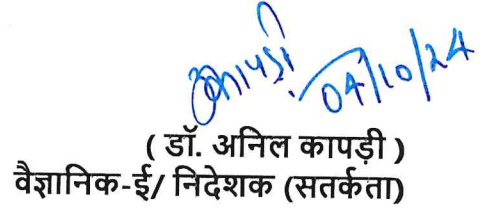 कापड़ी
04/10/24
( डॉ. अनिल कापड़ी )
वैज्ञानिक-ई/ निदेशक (सतर्कता)